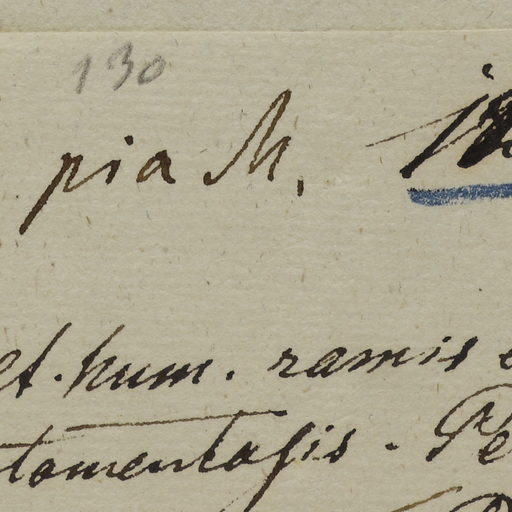 130
pia M.
et. hum. ramis
tomentosis. Pe